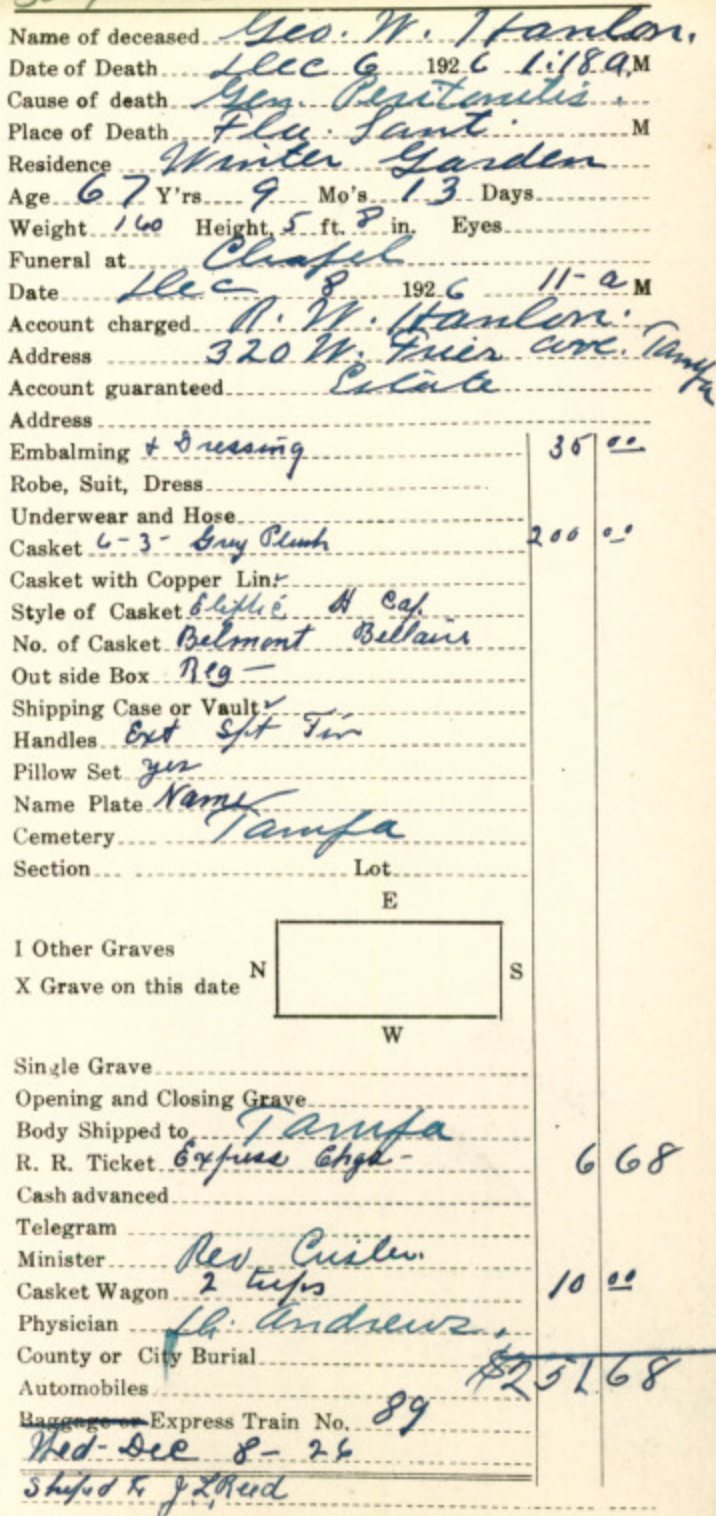 Name of deceased Geo. W. Hanlon.
Date of Death Dec 6 1926 1:18 a, M
Cause of death Gen. Peritonitis.
Place of Death Fla. Sant. M
Residence Winter Garden
Age 67 Y'rs 9 Mo's 13 Days
Weight 160 Height, 5 ft. 8 in. Eyes
Funeral at Chapel
Date Dec 8 1926 11- a M
Account charged R. W. Hanlon.
Address 320 W. Frier ave. Tampa
Account guaranteed Estate
Address
Embalming + Dressing 35 00
Robe, Suit, Dress
Underwear and Hose
Casket 6-3- Grey Plush 200 00
Casket with Copper Lin.
Style of Casket Eliptic H Cap.
No. of Casket Belmont Bellair
Out side Box Reg —
Shipping Case or Vault
Handles Ext Tin
Pillow Set yes
Name Plate Name
Cemetery Tampa
Section Lot
E
I Other Graves
N S
X Grave on this date
W
Single Grave
Opening and Closing Grave
Body Shipped to Tampa
R. R. Ticket Express Chgs - 6 68
Cash advanced
Telegram
Minister Rev Crisler.
Casket Wagon 2 trips 10 00
Physician Dr. Andrews.
County or City Burial
$251 68
Automobiles
Baggage or Express Train No. 89
Wed- Dec 8 - 26
Shiped to J L Reed